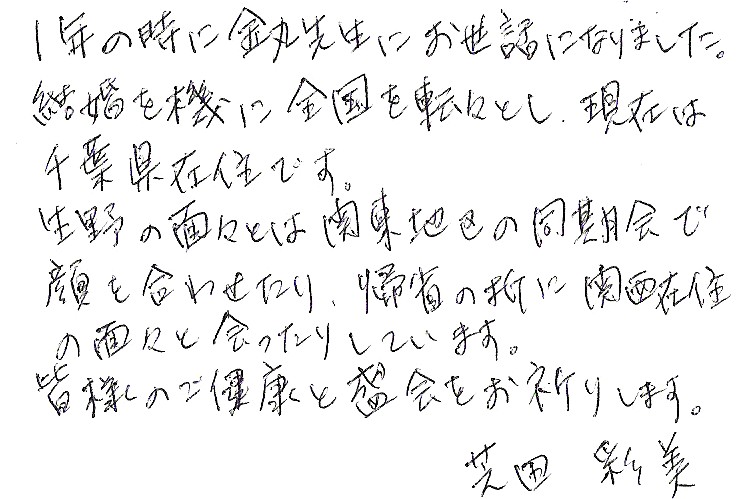 1年の時に金丸先生にお世話になりました。
結婚を機に全国を転々とし、現在は
千葉県在住です。
生野の面々とは関東地区の同期会で
顔を合わせたり、帰省の折に関西在住
の面々と会ったりしています。
皆様のご健康と盛会をお祈りします。
芝田 彩美